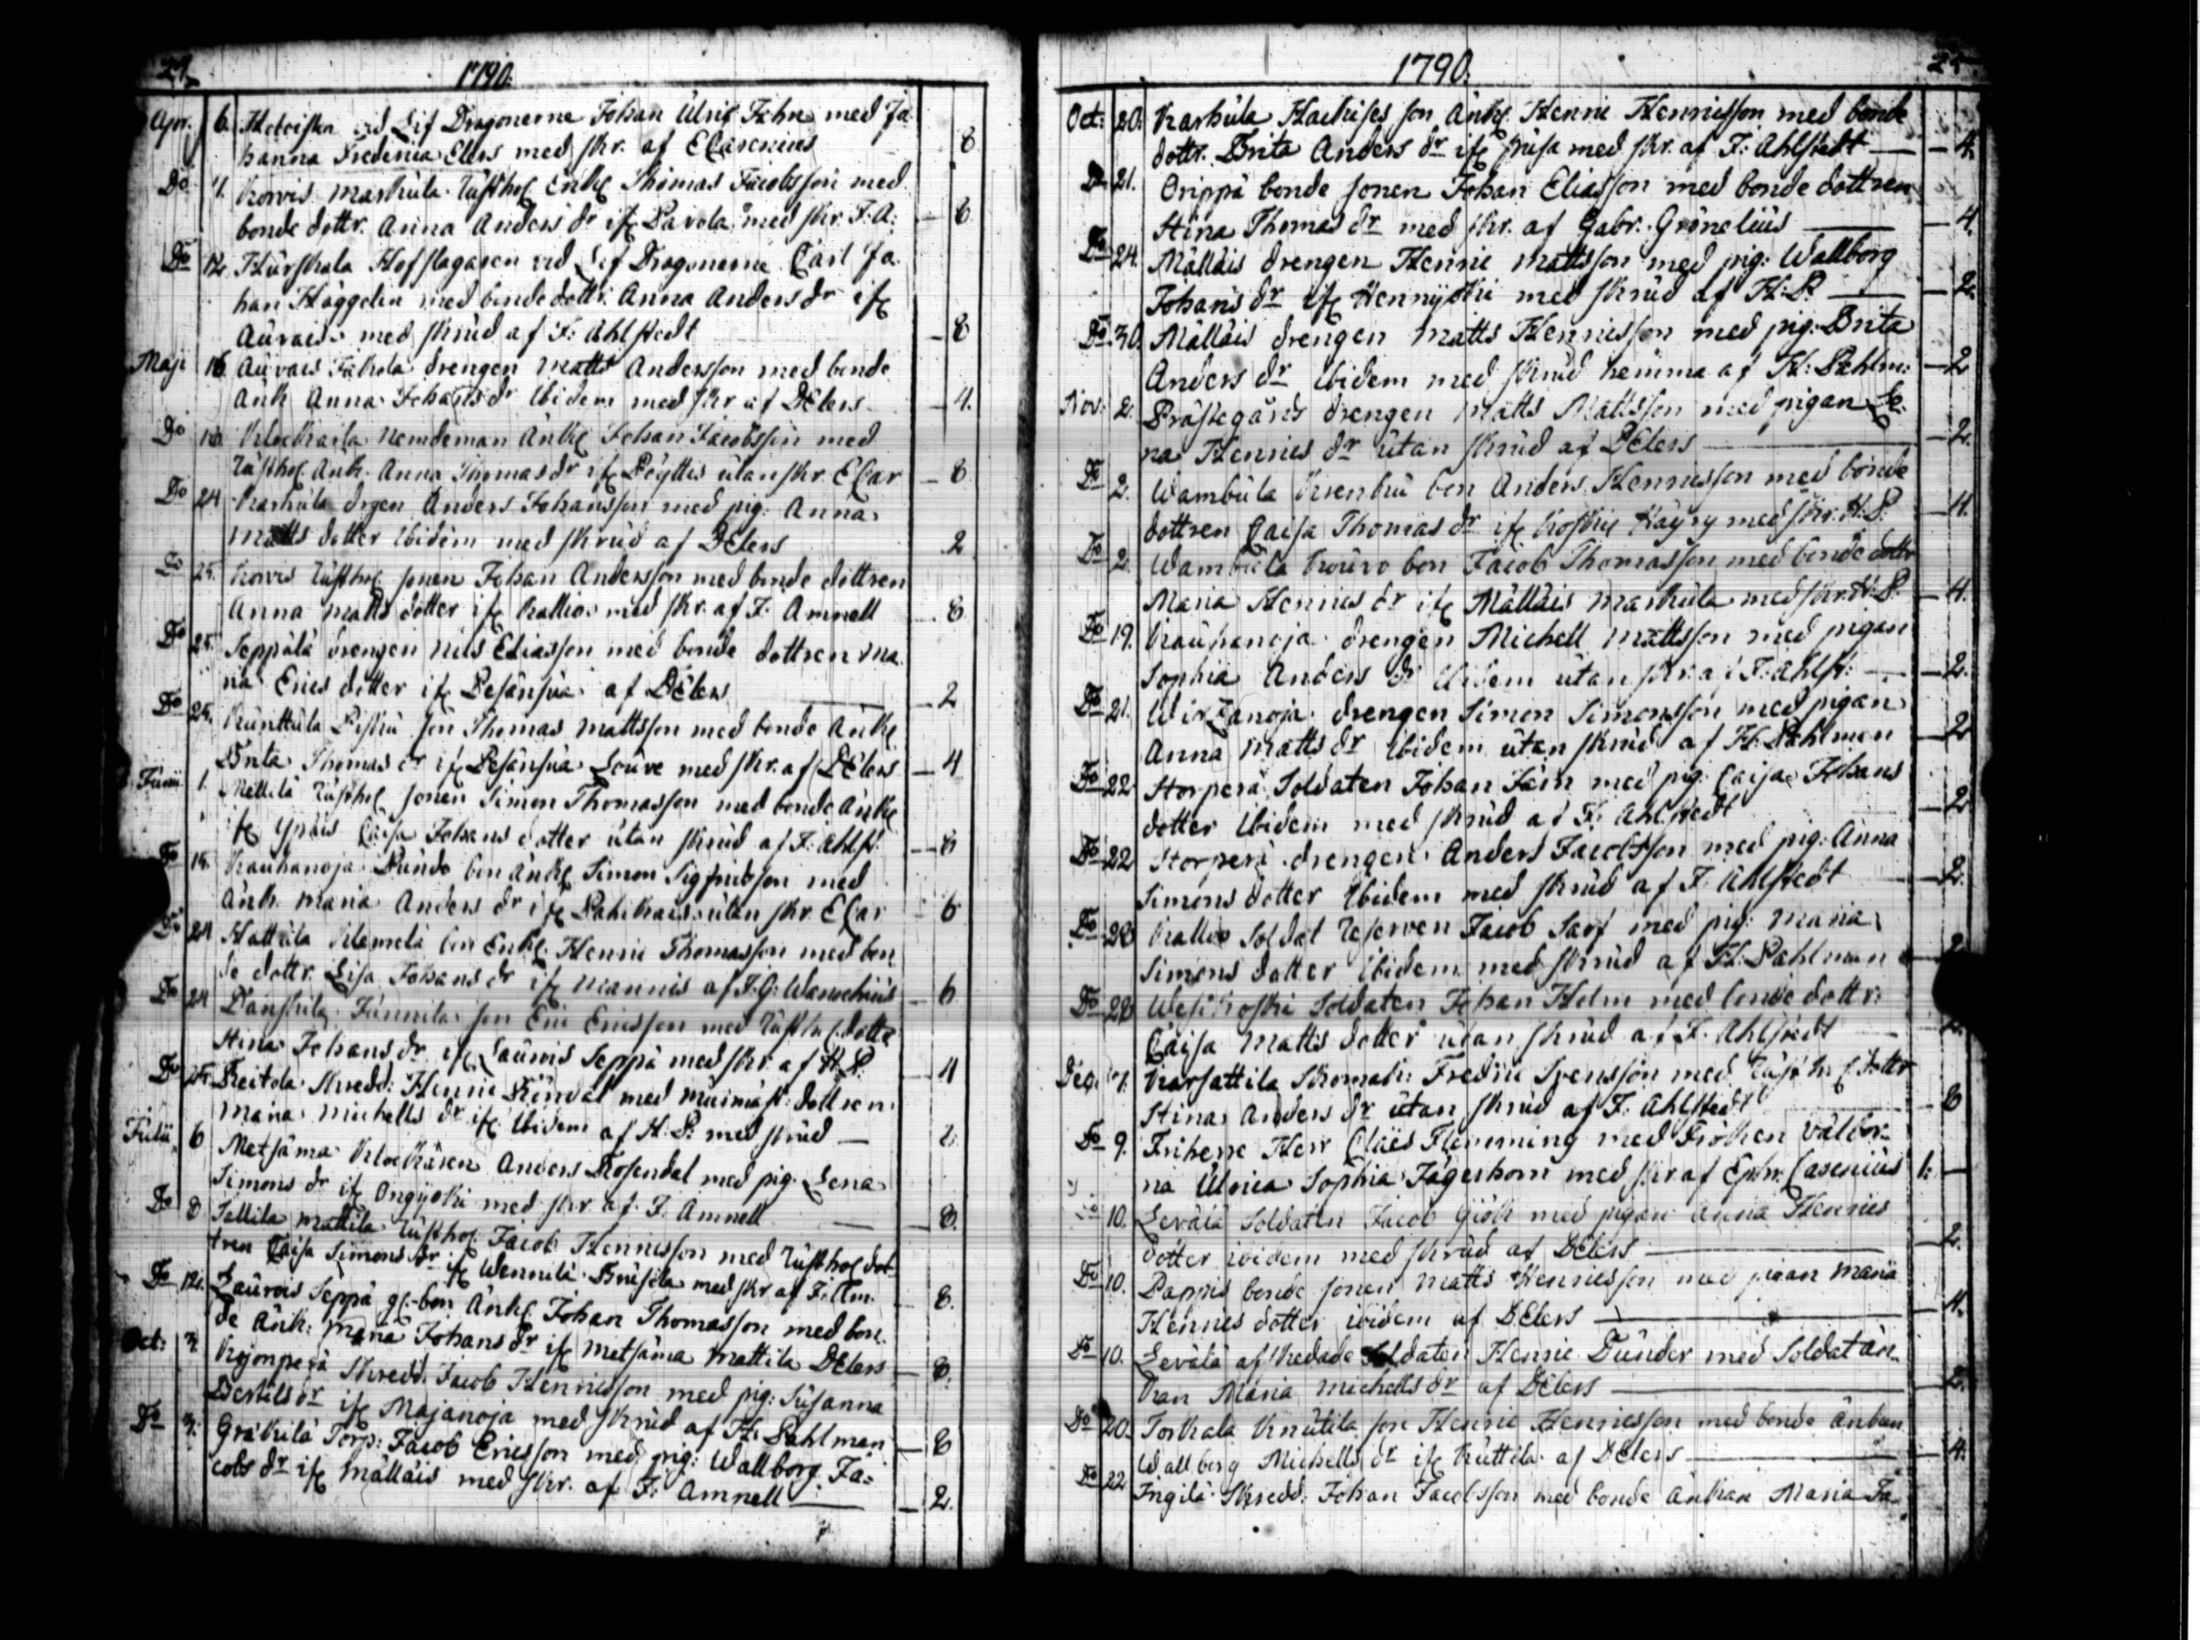 24. 1790.
Apr. 6. vid Lif Dragonerne Johan Ulric Fehn med Jo
hanna Frederica Elers med skr. af E Carenius 8
Do 7. Korvis Markula Rusthol Enkl Thomas Jacobsson med
bonde dottr. Anna Anders dr ifr Pavola med skr. F. A. — 6
Do 12. Hurskala Hofslagaren vid Lif Dragonerne Carl Jo
han Häggelin med bonde dottr. Anna Anders dr ifr
Auvais med skrud af F: Ahlstedt — 8
Maji 16. Auvais drengen Matts Andersson med bonde
Änk Anna Johans dr Ibidem med skr af DElers — 4.
Do Nemdeman Änkl Johan Jacobsson med
Rusthol Änk. Anna Thomas dr ifr Pöyttis utan skr. E Car — 8
Do 24 Karhula drgen Anders Johansson med pig. Anna
Matts dotter Ibidem med skrud af DElers 2
Do 25. Korvis Rusthol sonen Johan Andersson med bonde dottren
Anna Matts dotter ifr Kallio med skr. af F. Amnell — 8
Do 25. Seppälä drengen Nils Eliasson med bonde dottren Ma
ria Erics dotter ifr Pesänsua af DElers — 2
Do 25. Kunttula Piskú son Thomas Mattsson med bonde Änkl
Brita Thomas dr ifr Pesänsua Louve med skr. af DElers — 4
Junii 1. Mellilä Rusthol sonen Simon Thomasson med bonde Änkl
ifr Ypäis Caisa Johans dotter utan skrud af F. Ahlst. — 8
Do 18. Kauhanoja ben Änkl Simon Sigfridsson med
Änk. Maria Anders dr ifr utan skr. E Car — 6
Do 24 Hattula ben Enkl. Henric Thomasson med bon
de dottr. Lisa Johans dr ifr Mannis af J. G: Wanochius — 6
Do 24 Junnila son Eric Ericsson med Rusthol. dottr
Stina Johans dr ifr Laurois Seppä med skr. af H. P. — 4
Do 25. Skredd: Henric Röndal med dottren
Maria Michells dr ifr Ibidem af H. P: med skrud — 2.
Julii 6 Metsäma Klockaren Anders Rosendal med pig. Lena
Simons dr ifr Ongijoki med skr. af F. Amnell — 8.
Do 8 Tallila Mattila Rusthol Jacob Henricsson med Rusthol dot
tren Caisa Simons dr ifr Wennilä Brusila med skr af F: Am. 8.
Do 12. Laurois Seppä gl. bon Änkl. Johan Thomasson med bon
de Änk: Maria Johans dr ifr Metsäma Mattila DElers — 8.
Oct: 3. Kojonperä Skredd. Jacob Henricsson med pig: Susanna
Bertils dr ifr Majanoja med skrud af H: Pahlman — 8
Do 3. Gräkilä Torp: Jacob Ericsson med pig: Wallborg Ja=
cobs dr ifr Mälläis med skr. af F: Amnell — 2.
1790. 25
Oct: 20. Karhula Hackises son Änkl. Henric Henricsson med bonde
dottr. Brita Anders dr ifr med skr. af F: Ahlstedt — 4.
Do 21. Orippä bonde sonen Johan Eliasson med bonde dottren
Stina Thomas dr med skr. af Gabr. Grönelius — 4.
Do 24 Mälläis drengen Henric Mattsson med pig: Wallborg
Johans dr ifr Hennijoki med skrud af H: P. — 2.
Do 30. Mälläis drengen Matts Henricsson med pig. Brita
Anders dr Ibidem med skrud hemma af H: Pahlm: — 2
Nov: 2. Prästegårds drengen Matts Mattsson med pigan Le=
na Henrics dr utan skrud af DElers — 2.
Do 2. Wambula Krenkú ben Anders Henricsson med bonde
dottren Caisa Thomas dr ifr Koskis Häyry med skr. H. P. — 4.
Do 2. Wambula Kouvo bon Jacob Thomasson med bonde dottr
Maria Henrics dr ifr Mälläis Markula med skr. H. P. — 4.
Do 19. Kauhanoja drengen Michell Mattsson med pigan
Sophia Anders dr Ibidem utan skr. af F: Ahlst: — 2.
Do 21. Wirzanoja drengen Simon Simonsson med pigan
Anna Matts dr Ibidem utan skrud af H. Pahlman — 2
Do 22. Storperä Soldaten Johan Fain med pig. Caisa Johans
dotter Ibidem med skrud af F. Ahlstedt — 2
Do 22 Storperä drengen Anders Jacobsson med pig: Anna
Simons dotter Ibidem med skrud af F. Ahlstedt — 2.
Do 28 Kallio Soldat Reserven Jacob Sarf med pig: Maria
Simons dotter Ibidem med skrud af H. Pahlman — 2
Do 28 Wesikoski Soldaten Johan Holm med bonde dottr:
Caisa Matts dotter utan skrud af F. Ahlstedt —
Dec. 7. Karsattila Skomak: Fredric Svensson med Rusthol dottr
Stina Anders dr utan skrud af F. Ahlstedt — 8
Do 9. Friherre Herr Claës Flemming med Fröken Välbor=
na Ulrica Sophia Jägerhorn med skr af Ephr. Carenius 1: —
10. Levälä Soldaten Jacob Giök med pigan Anna Henrics
dotter ibidem med skrud af DElers — 2.
Do 10. Pappis bonde sonen Matts Henricsson med pigan Maria
Henrics dotter ibidem af DElers — 4.
Do 10. Levälä afskedade Soldaten Henric Dunder med Soldat än=
kan Maria Michells dr af DElers — 2.
Do 20. Torkala Knutila son Henric Henricsson med bonde änkan
Wallborg Michells dr ifr Kuttila af DElers — 4.
Do 22 Ingilä Skredd. Johan Jacobsson med bonde änkan Maria Ja=